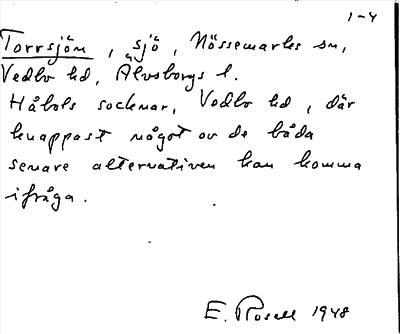 1-4
Torrsjön, sjö, Nössemarks sn,
Vedbo hd, Älvsborgs l.
Håbols socknar, Vedbo hd, där
knappast något av de båda
senare alternativen kan komma
ifråga.
E. Rosell 1948